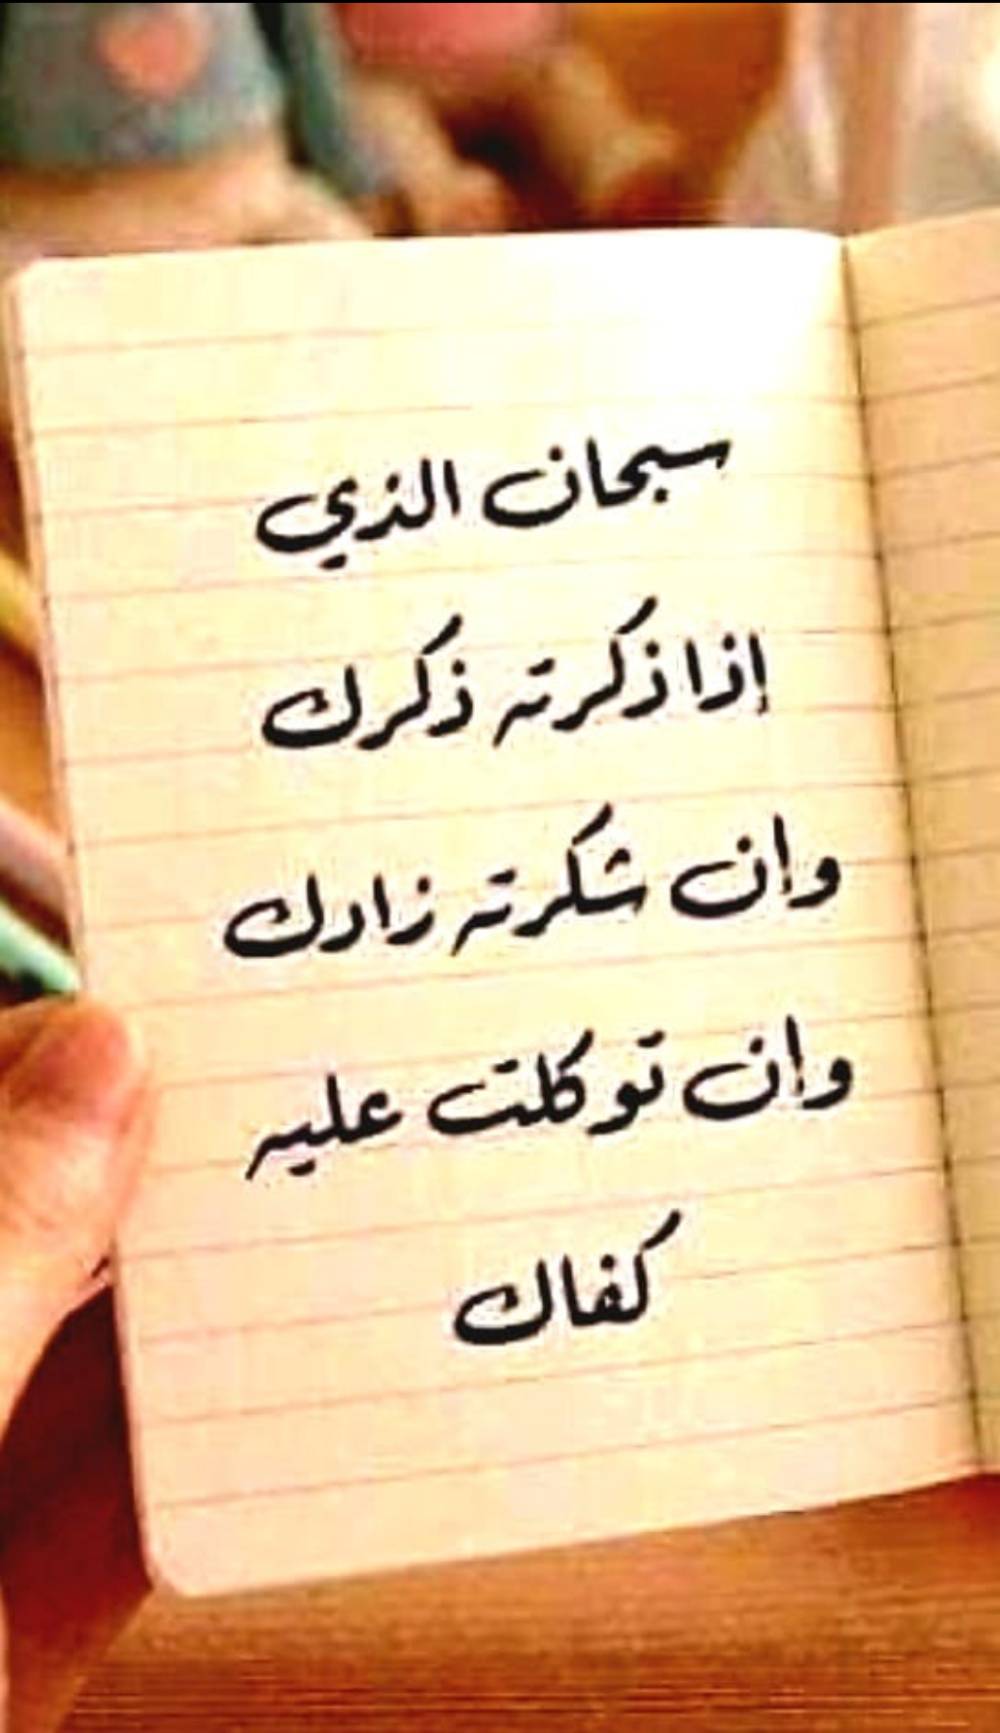 سبحان الذي
إذا ذكرته ذكرك
وإن شكرته زادك
وإن توكلت عليه
كفاك